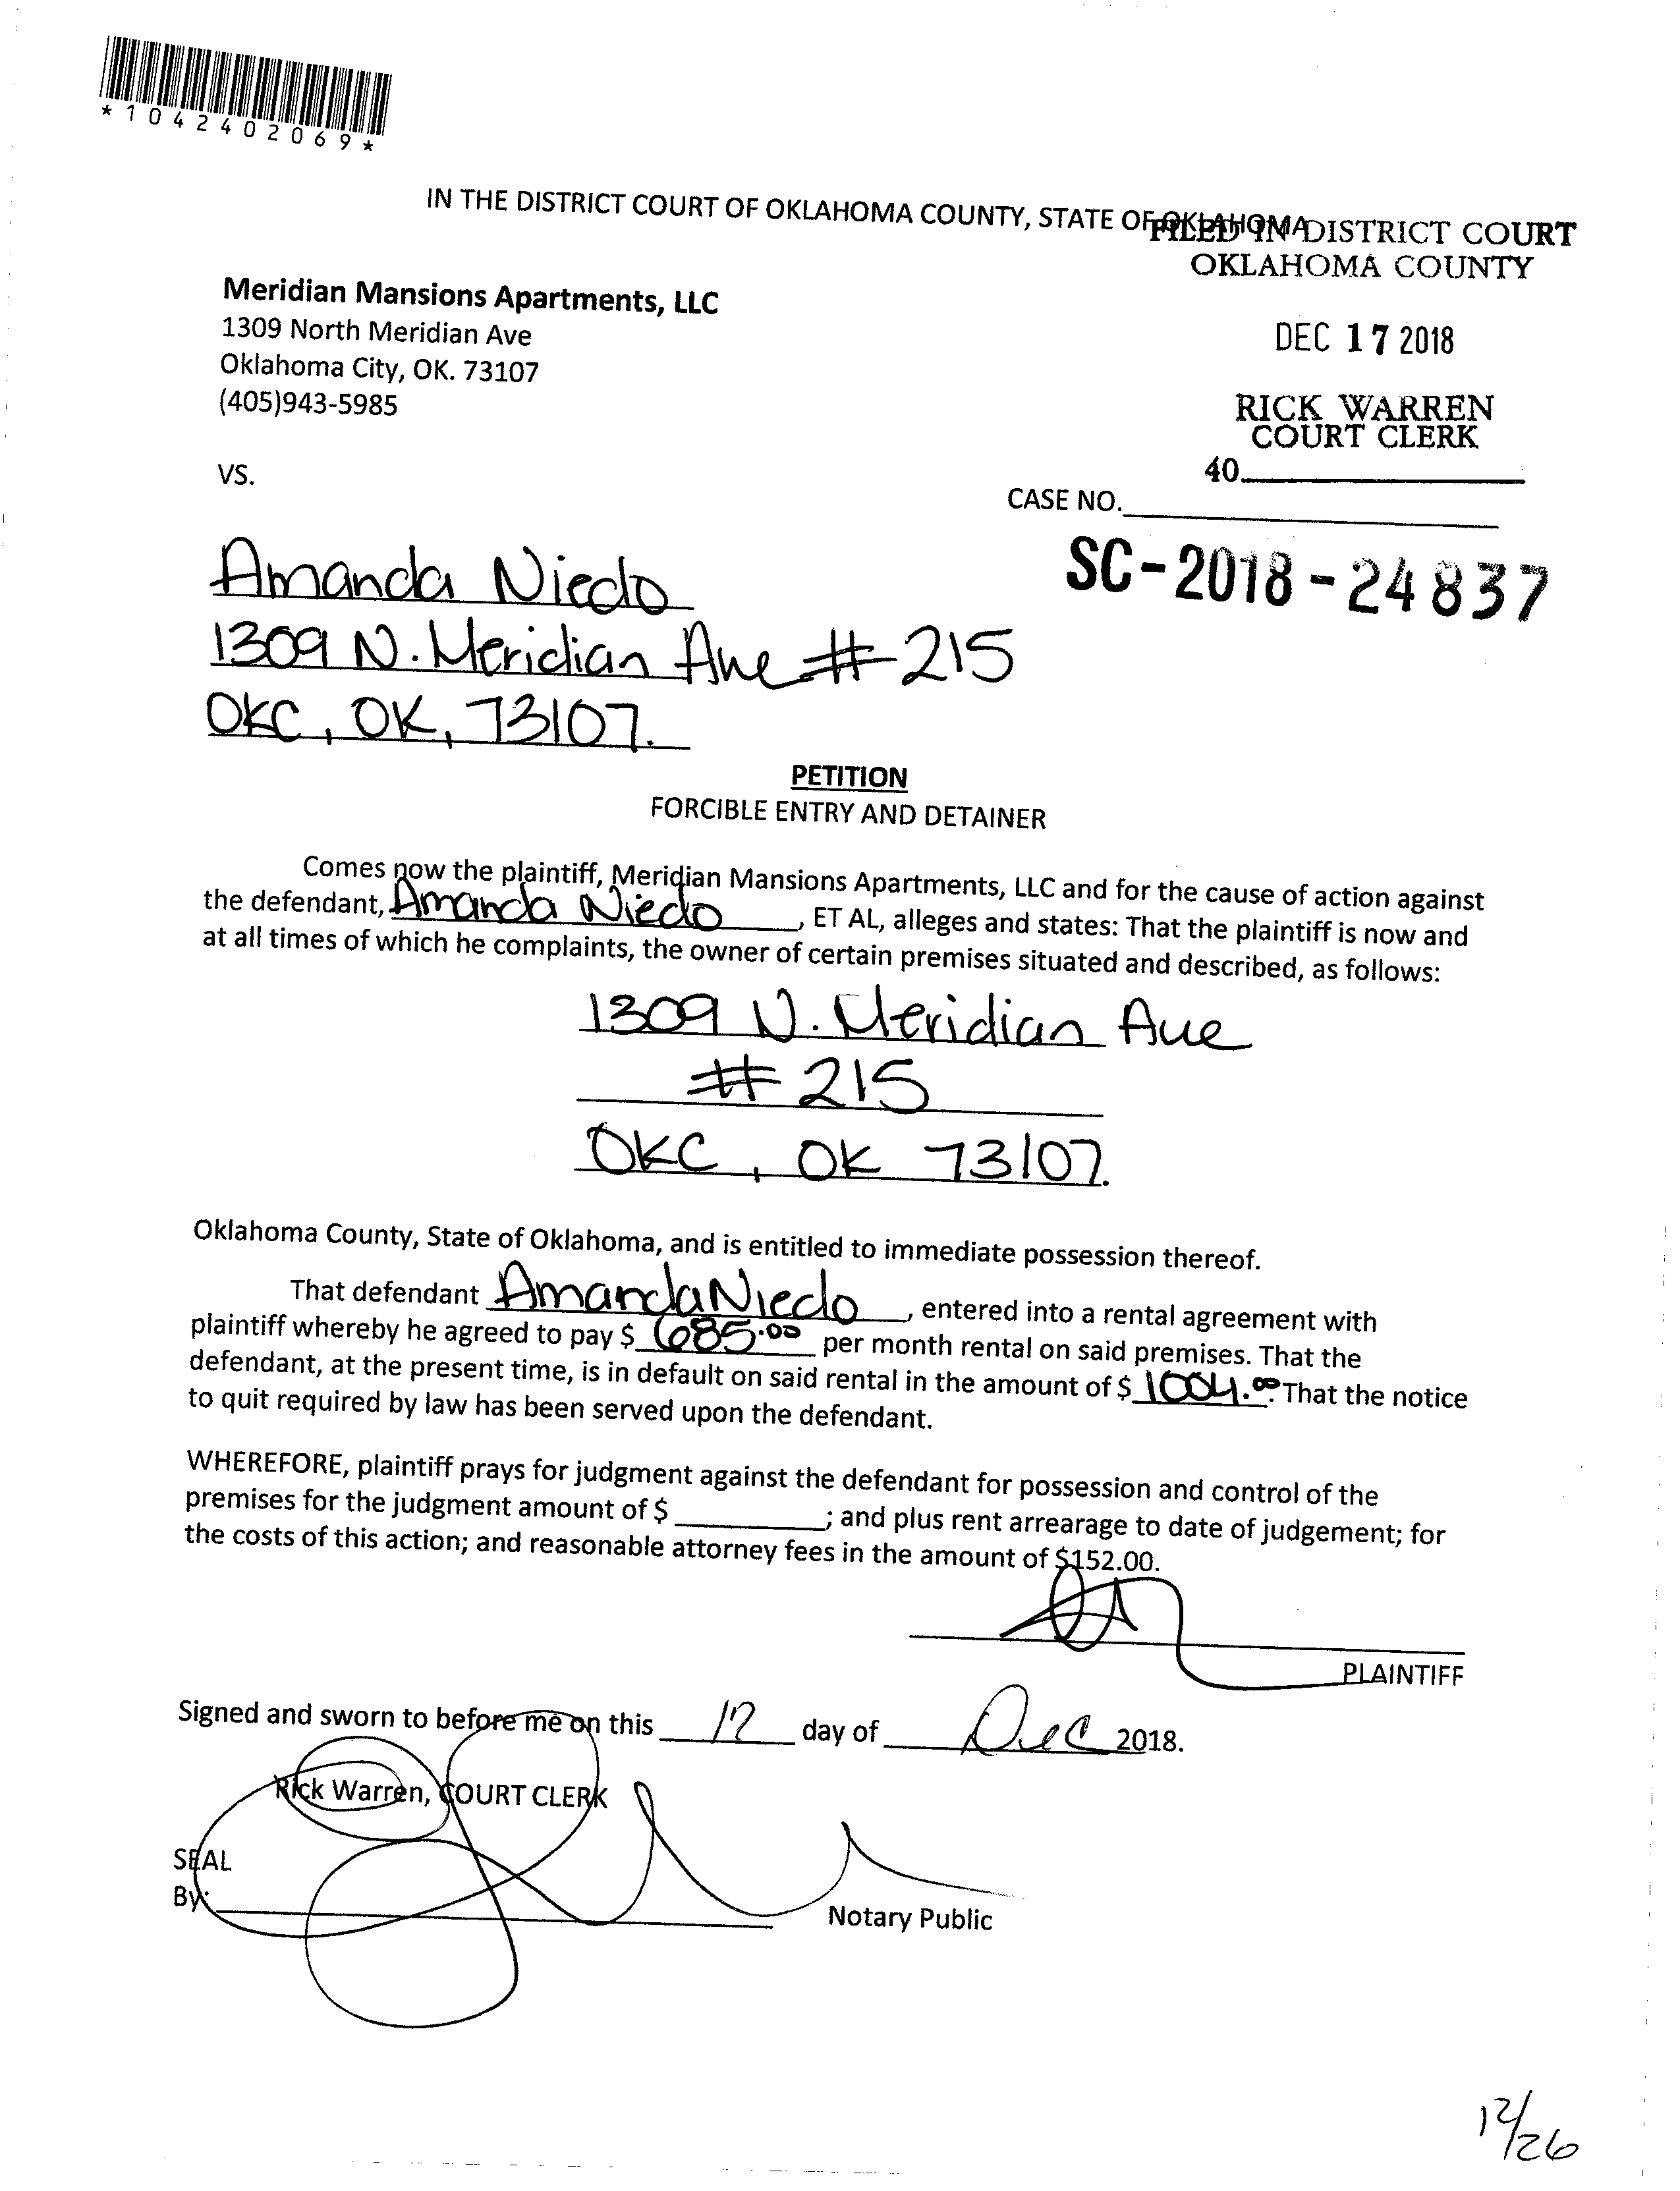 *1042402069*
IN THE DISTRICT COURT OF OKLAHOMA COUNTY, STATE OF OKLAHOMA
FILED IN DISTRICT COURT
OKLAHOMA COUNTY
Meridian Mansions Apartments, LLC
1309 North Meridian Ave
Oklahoma City, OK. 73107
(405)943-5985
DEC 17 2018
RICK WARREN
COURT CLERK
40
VS.
CASE NO.
SC-2018-24837
Amanda Niedo
1309 N. Meridian Ave # 215
OKC, OK, 73107.
PETITION
FORCIBLE ENTRY AND DETAINER
Comes now the plaintiff, Meridian Mansions Apartments, LLC and for the cause of action against
the defendant, Amanda Niedo, ET AL, alleges and states: That the plaintiff is now and
at all times of which he complaints, the owner of certain premises situated and described, as follows:
1309 N. Meridian Ave
# 215
OKC, OK 73107.
Oklahoma County, State of Oklahoma, and is entitled to immediate possession thereof.
That defendant Amanda Niedo, entered into a rental agreement with
plaintiff whereby he agreed to pay $ 685.00 per month rental on said premises. That the
defendant, at the present time, is in default on said rental in the amount of $ 1004.00. That the notice
to quit required by law has been served upon the defendant.
WHEREFORE, plaintiff prays for judgment against the defendant for possession and control of the
premises for the judgment amount of $ ; and plus rent arrearage to date of judgement; for
the costs of this action; and reasonable attorney fees in the amount of $152.00.
PLAINTIFF
Signed and sworn to before me on this 17 day of Dec 2018.
Rick Warren, COURT CLERK
SEAL
By:
Notary Public
12/26